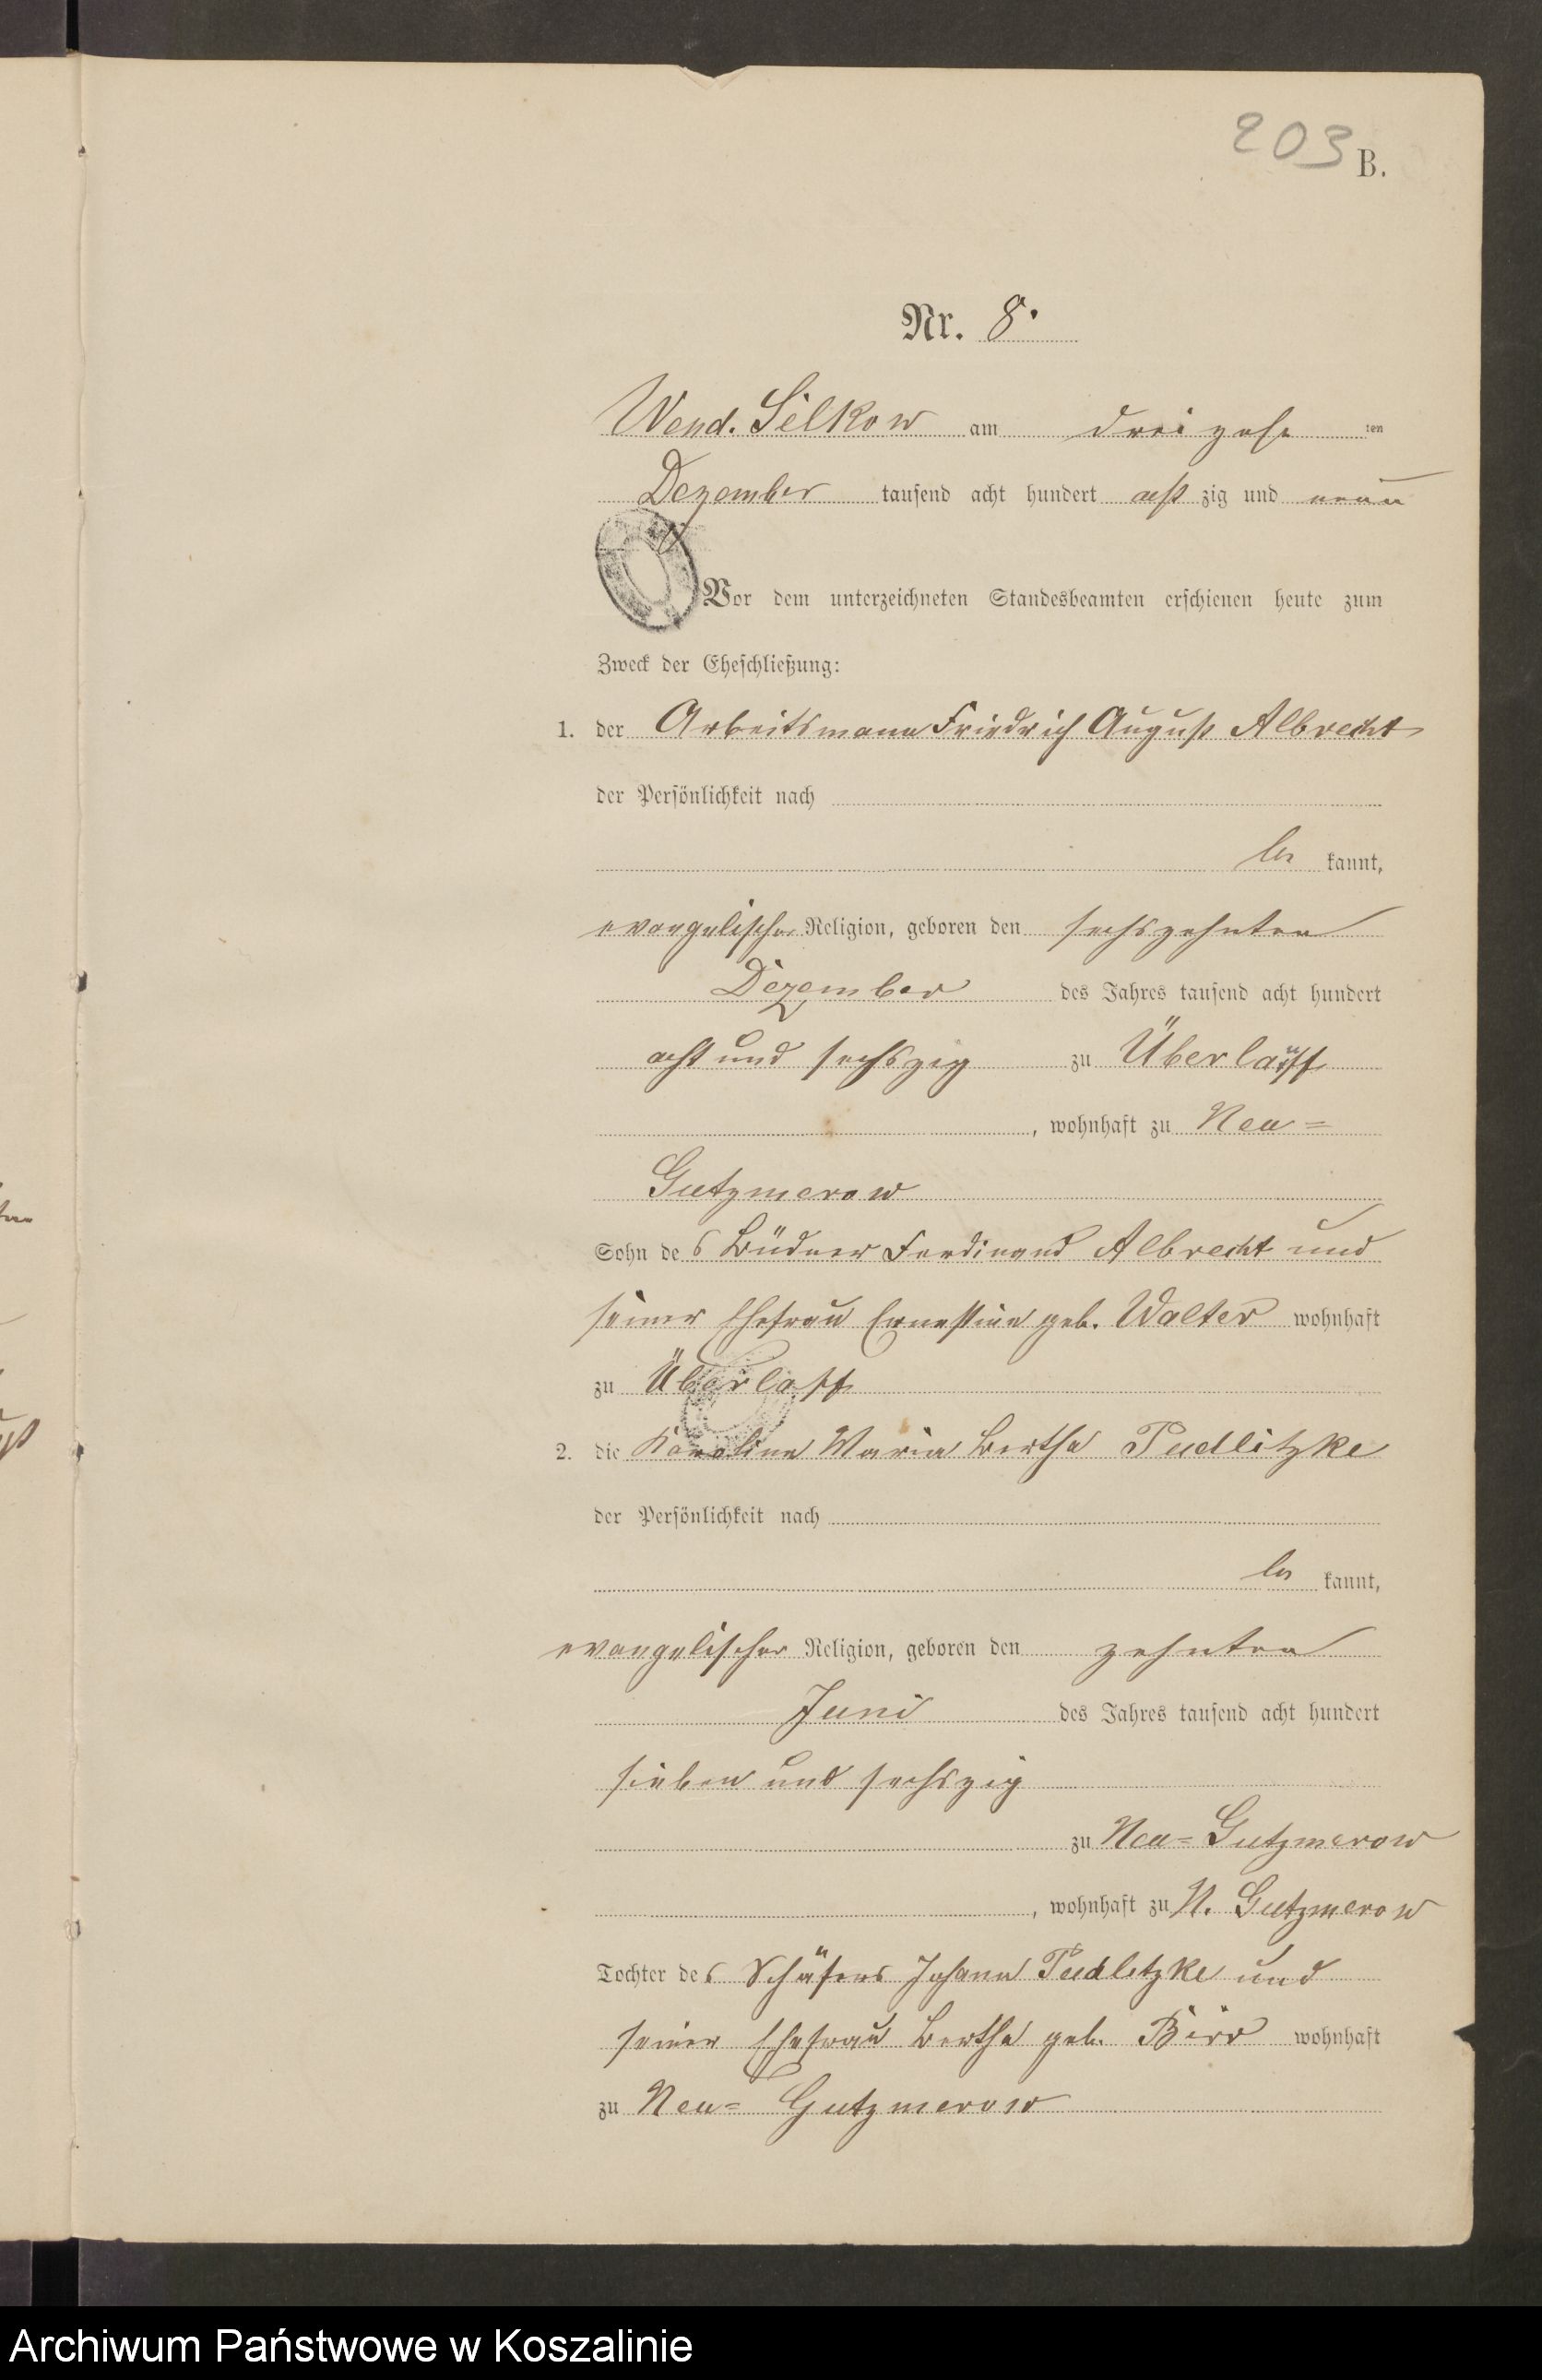 203 B.
Nr. 8.
Wend. Silkow am dreizehn ten
Dezember tausend acht hundert acht zig und neun
Vor dem unterzeichneten Standesbeamten erschienen heute zum
Zweck der Eheschließung:
1. der Arbeitsmann Friedrich August Albrecht
der Persönlichkeit nach
be kannt,
evangelischer Religion, geboren den sechszehnten
Dezember des Jahres tausend acht hundert
acht und sechszig zu
, wohnhaft zu Neu=
Gutzmerow
Sohn des Büdner Ferdinand Albrecht und
seiner Ehefrau Ernestine geb. Walter wohnhaft
zu
2. die Karoline Maria Bertha Pudlitzke
der Persönlichkeit nach
be kannt,
evangelischer Religion, geboren den zehnten
Juni des Jahres tausend acht hundert
sieben und sechszig
zu Neu=Gutzmerow
, wohnhaft zu N. Gutzmerow
Tochter des Schäfers Johann Pudlitzke und
seiner Ehefrau Bertha geb. Birr wohnhaft
zu Neu= Gutzmerow
Archiwum Państwowe w Koszalinie